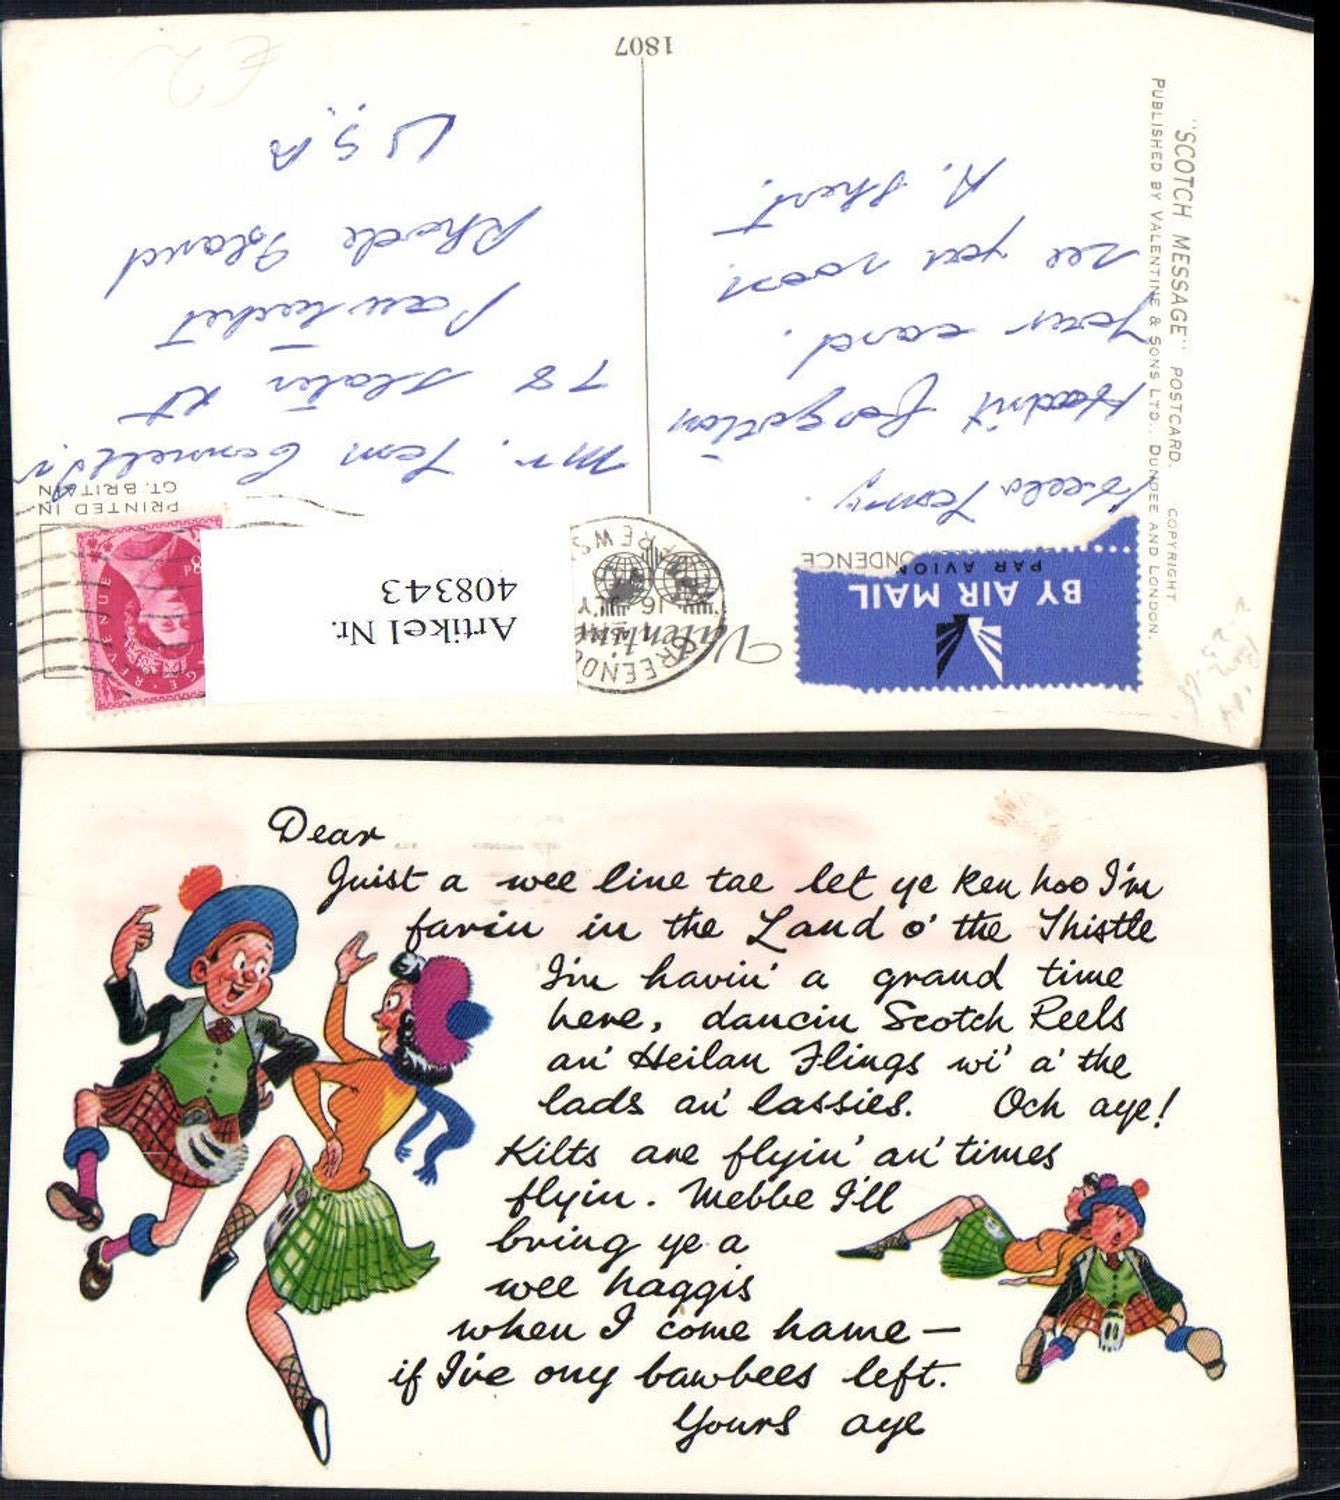 "SCOTCH MESSAGE" POSTCARD. COPYRIGHT.
PUBLISHED BY VALENTINE & SONS LTD., DUNDEE AND LONDON.
BY AIR MAIL
PAR AVION
Valentine
Artikel Nr.
408343
PRINTED IN
GT. BRITAIN
REVENUE
Hello Tommy.
Hadn't forgotten
your card.
see you soon.
Mr. Tom
78 Slater St
Pawtucket
Rhode Island
U.S.A
1807
£2
Dear
Juist a wee line tae let ye ken hoo I'm
farin in the Land o' the Thistle
I'm havin' a grand time
here, dancin Scotch Reels
an' Heilan Flings wi' a' the
lads an' lassies. Och aye!
Kilts are flyin' an' times
flyin. Mebbe I'll
bring ye a
wee haggis
when I come hame —
if I've ony bawbees left.
Yours aye